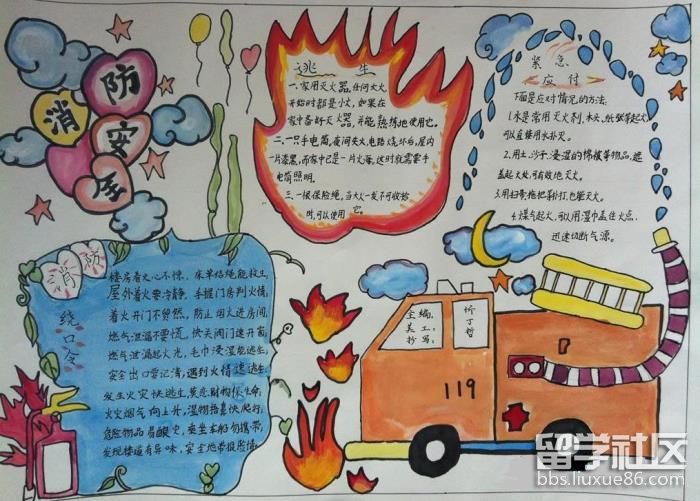 消
防
安
全
逃 生
一.家用灭火器,任何大火,
开始时都是小火,如果在
家中备射灭火器,并能熟练地使用它。
二.一只手电筒,夜间失火,电路烧坏后,屋内
一片漆黑,而家中已是一片火海,这时就需要手
电筒照明。
三.一根保险绳,当大火一发不可收拾
时,可以使用它。
紧急
应付
下面是应对情况的方法:
1.水是常用灭火剂,木头,纸张等起火,
可以直接用水扑灭。
2.用土、沙子、浸湿的棉被等物品,遮
盖起火处,可有效地灭火。
3.用扫帚,拖把等扑打,也能灭火。
4.煤气起火,可以用湿巾盖住火点,
迅速切断气源。
消防
绕口令
楼房着火心不惊,床单结绳能救生
屋外着火要冷静,手摸门房判火情;
着火开门不贸然,防止烟火进房间
燃气泄漏不要慌,快关阀门速开窗;
燃气泄漏起火光,毛巾浸湿能逃生;
安全出口牢记清,遇到火情速逃生;
发生火灾快逃生,莫恋财物保生命;
火灾烟气向上升,湿物捂鼻快爬行;
危险物品易酿灾,乘坐车船勿携带;
发现楼道有异味,安全地带报险情
主编:
美工:
抄写:
119
留学社区
bbs.liuxue86.com